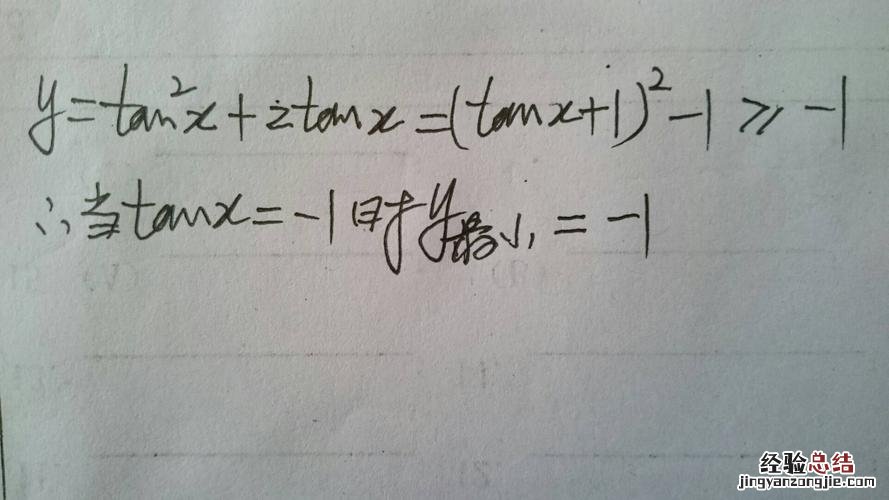 y=tan²x+2tanx=(tanx+1)²-1≥-1
∴当tanx=-1时y最小=-1
经验总结
jingyanzongjie.com